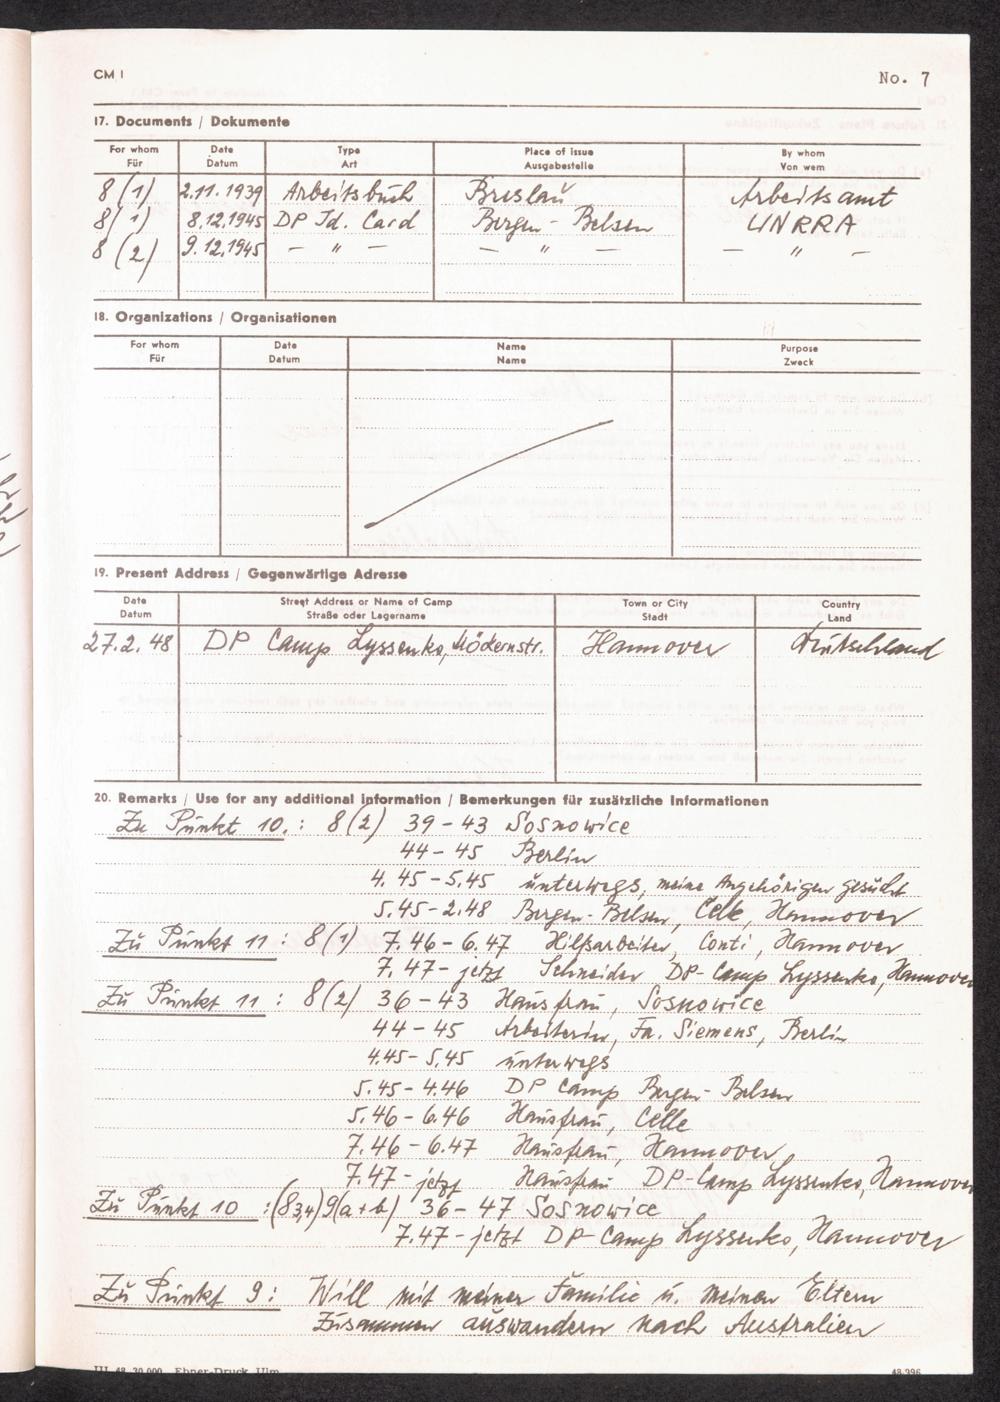 CM I
No. 7
17. Documents / Dokumente
For whom Für
Date Datum
Type Art
Place of issue Ausgabestelle
By whom Von wem
8 (1) 2.11.1939 Arbeitsbuch Breslau Arbeitsamt
8 (1) 8.12.1945 DP Id. Card Bergen-Belsen UNRRA
8 (2) 9.12.1945 — " — — " — — " —
18. Organizations / Organisationen
For whom Für
Date Datum
Name Name
Purpose Zweck
19. Present Address / Gegenwärtige Adresse
Date Datum
Street Address or Name of Camp Straße oder Lagername
Town or City Stadt
Country Land
27.2.48 DP Camp Lyssenko, Hannover Deutschland
20. Remarks / Use for any additional information / Bemerkungen für zusätzliche Informationen
Zu Punkt 10.: 8(2) 39-43 Sosnowice
44-45 Berlin
4.45-5.45 unterwegs, meine Angehörigen gesucht
5.45-2.48 Bergen-Belsen, Celle, Hannover
Zu Punkt 11: 8(1) 7.46-6.47 Hilfsarbeiter, Conti, Hannover
7.47-jetzt Schneider DP-Camp Lyssenko, Hannover
Zu Punkt 11: 8(2) 36-43 Hausfrau, Sosnowice
44-45 Arbeiterin, Fa. Siemens, Berlin
4.45-5.45 unterwegs
5.45-4.46 DP Camp Bergen-Belsen
5.46-6.46 Hausfrau, Celle
7.46-6.47 Hausfrau, Hannover
7.47-jetzt Hausfrau DP-Camp Lyssenko, Hannover
Zu Punkt 10 :(8 3,4) 9(a+b) 36-47 Sosnowice
7.47-jetzt DP-Camp Lyssenko, Hannover
Zu Punkt 9: Will mit meiner Familie u. meinen Eltern
zusammen auswandern nach Australien
III 48 30 000 Ebner-Druck Ulm
48-396